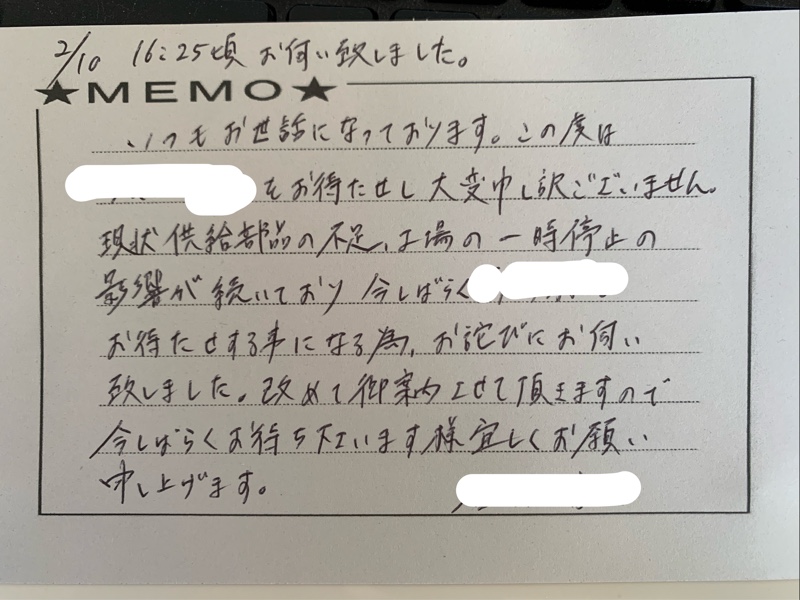 2/10 16:25頃 お伺い致しました。
★MEMO★
いつもお世話になっております。この度は
をお待たせし大変申し訳ございません。
現状供給部品の不足、工場の一時停止の
影響が続いており 今しばらく
お待たせする事になる為、お詫びにお伺い
致しました。改めて御案内させて頂きますので
今しばらくお待ち下さいます様宜しくお願い
申し上げます。